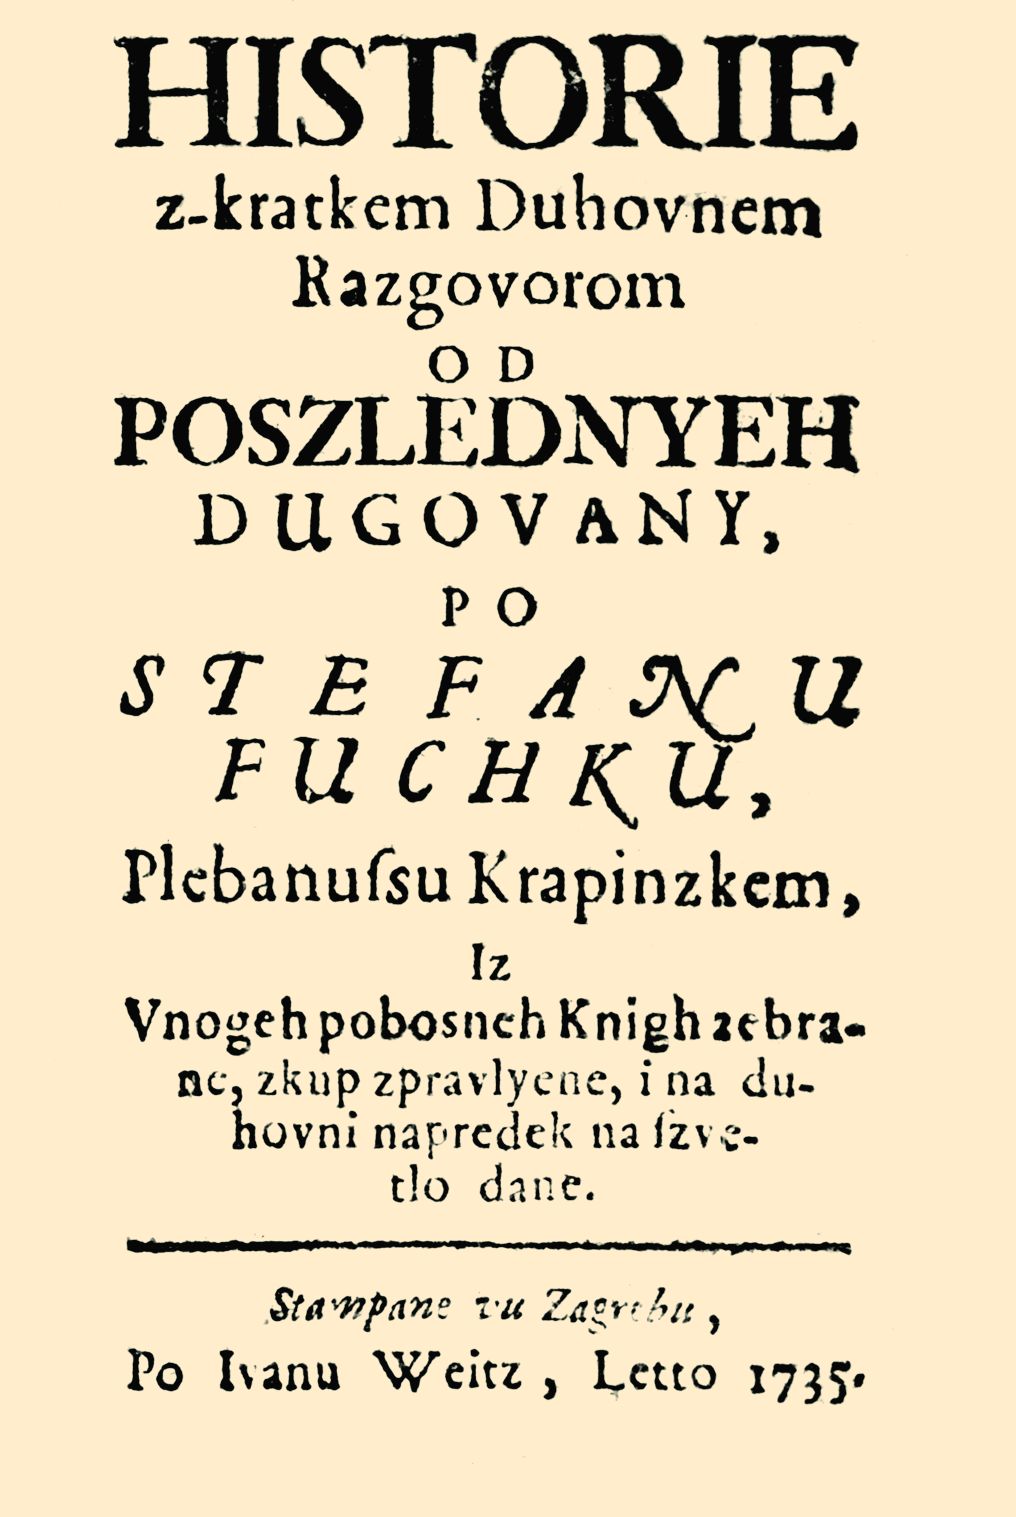 HISTORIE
z-kratkem Duhovnem
Razgovorom
OD
POSZLEDNYEH
DUGOVANY,
PO
STEFANU
FUCHKU,
Plebanuſsu Krapinzkem,
Iz
Vnogeh pobosneh Knigh zebra-
ne, zkup zpravlyene, i na du-
hovni napredek na ſzve-
tlo dane.
Stampane vu Zagrebu,
Po Ivanu Weitz, Letto 1735.